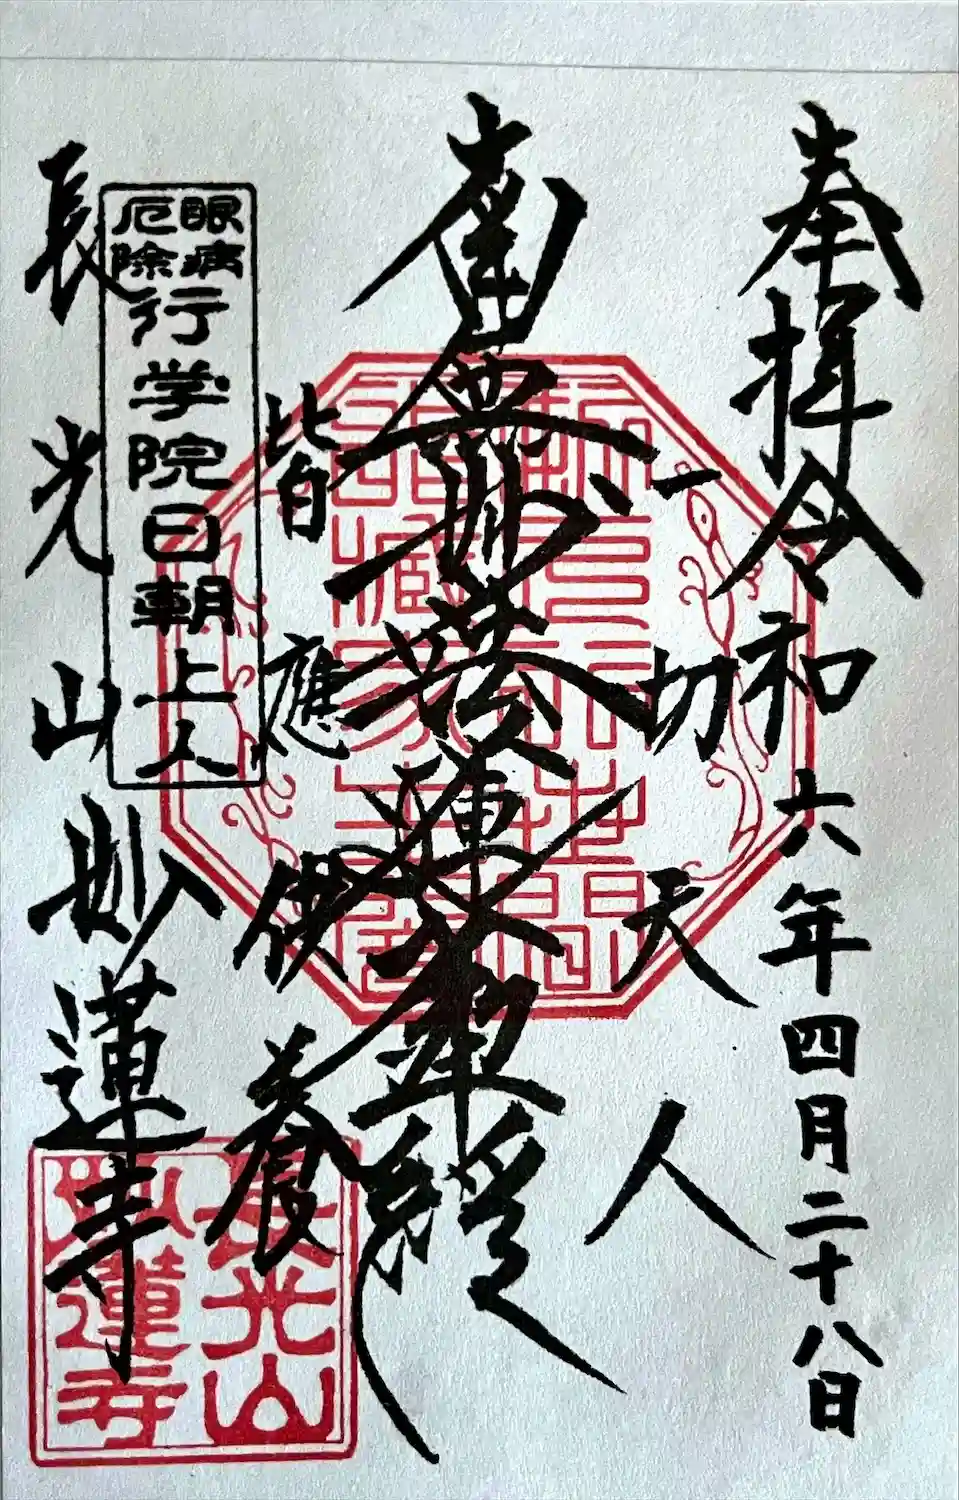 奉拝 令和六年四月二十八日
一切天人
南無妙法蓮華經
皆應供養
眼病
厄除
行学院日朝上人
長光山 妙蓮寺
長光山
妙蓮寺